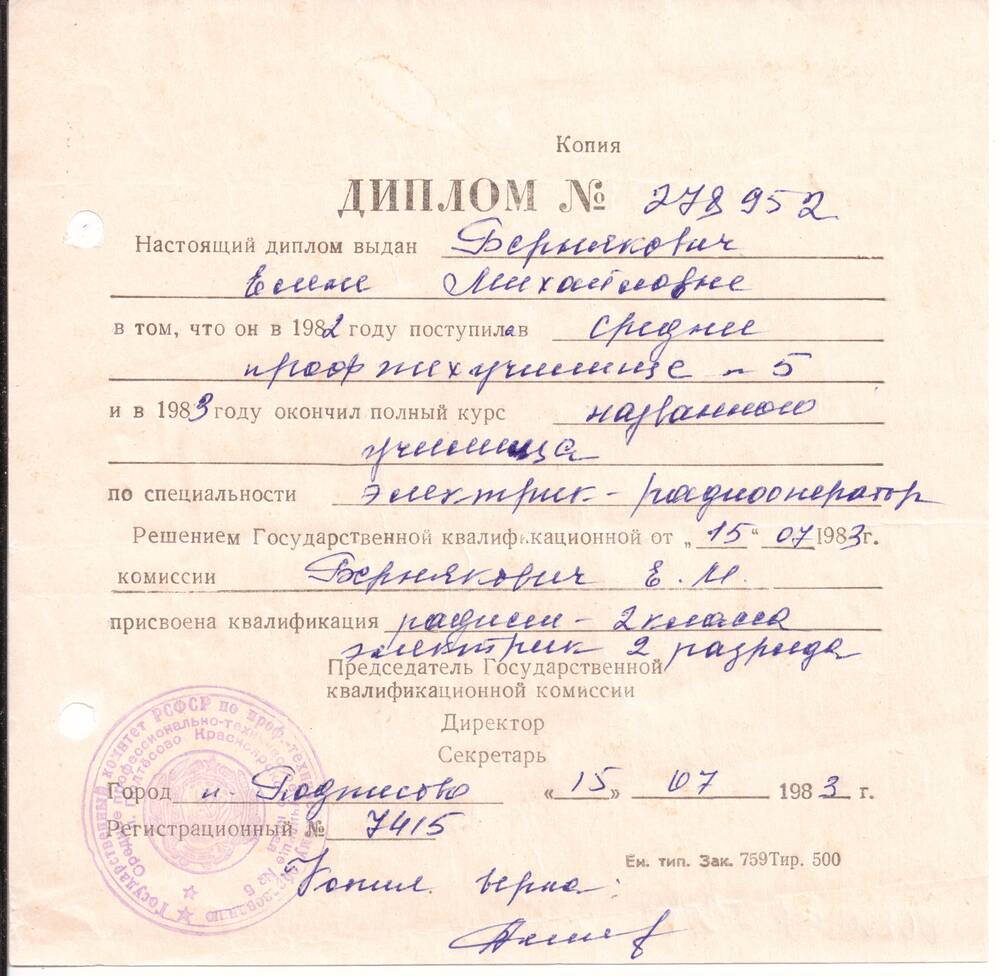 Копия
ДИПЛОМ № 278952
Настоящий диплом выдан Бернякович
Елене Михайловне
в том, что он в 1982 году поступила в средне
проф техучилище - 5
и в 1983 году окончил полный курс названного
училища
по специальности электрик - радиооператор
Решением Государственной квалификационной от „15" 07 1983г.
комиссии Бернякович Е. М.
присвоена квалификация радист - 2 класса
электрик 2 разряда
Председатель Государственной
квалификационной комиссии
Директор
Секретарь
Город п. Подтесово «15» 07 1983 г.
Регистрационный № 7415
Ен. тип. Зак. 759 Тир. 500
Копия верна:
Государственный комитет РСФСР по проф.-техн.
Среднее профессионально-техни училище № 5
п. Подтёсово Красноярского края